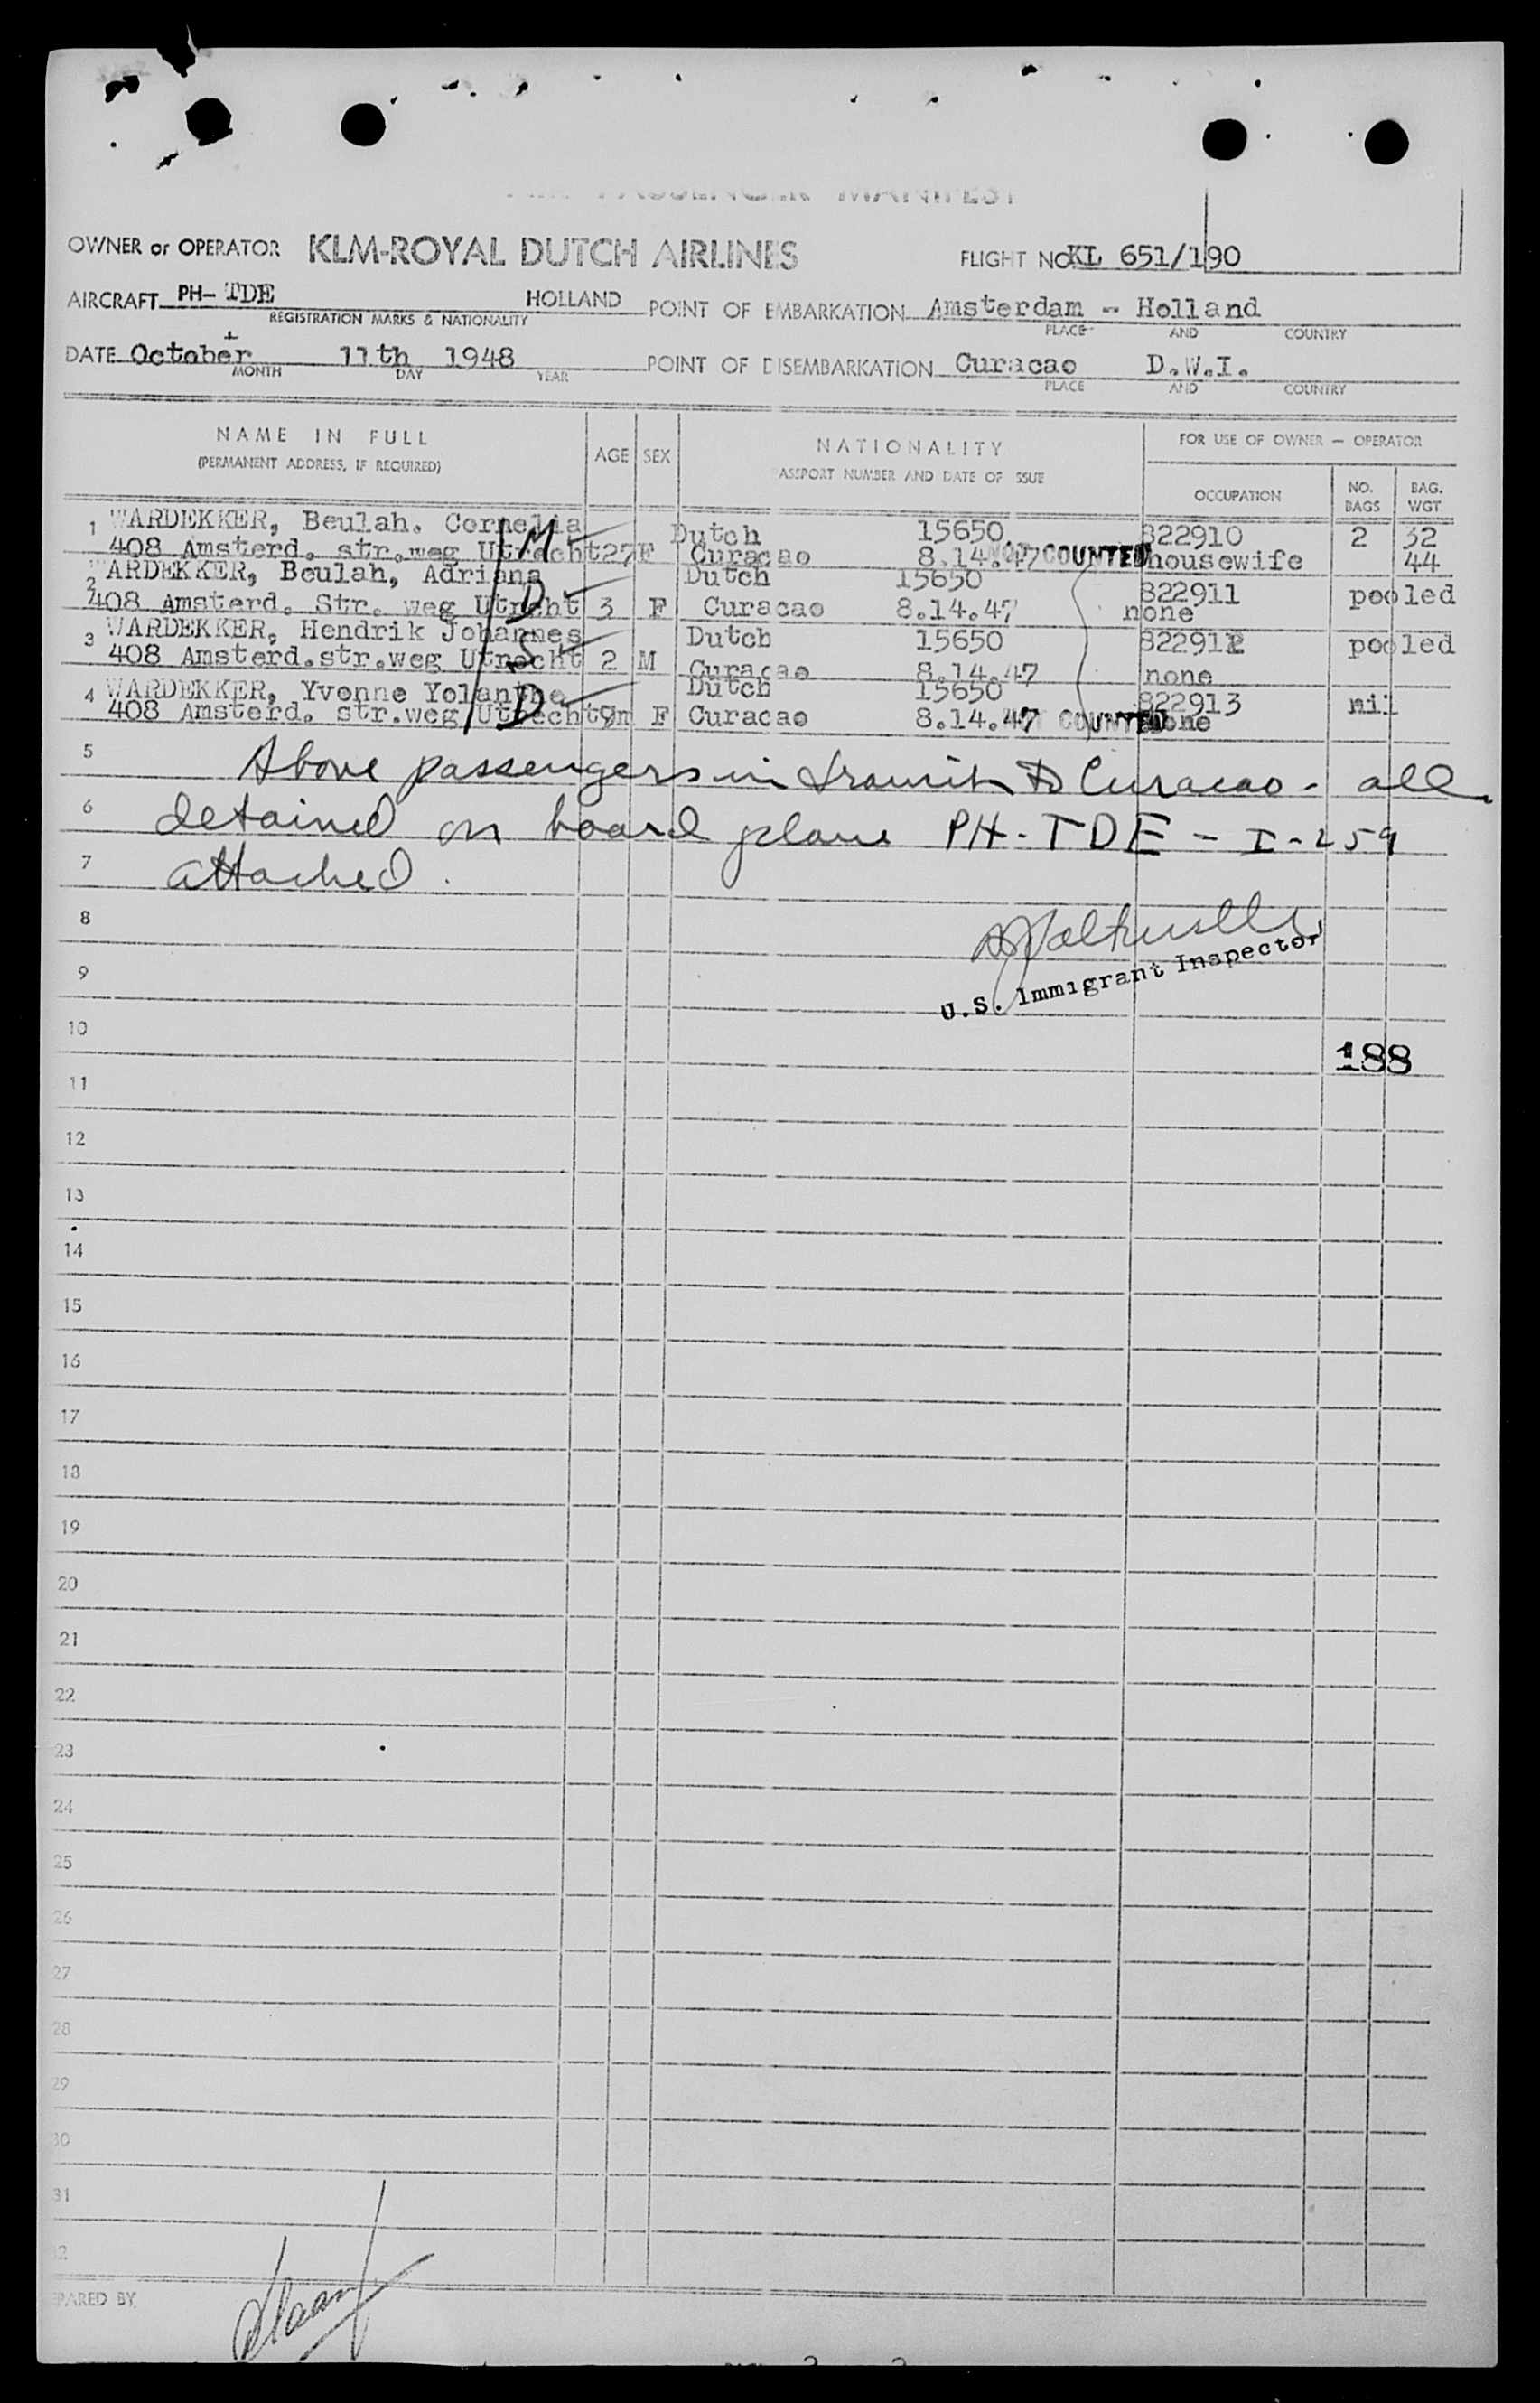 AIR PASSENGER MANIFEST
OWNER or OPERATOR KLM-ROYAL DUTCH AIRLINES FLIGHT NO. KL 651/190
AIRCRAFT PH- TDE HOLLAND POINT OF EMBARKATION Amsterdam -- Holland
REGISTRATION MARKS & NATIONALITY PLACE AND COUNTRY
DATE October 11th 1948 POINT OF DISEMBARKATION Curacao D.W.I.
MONTH DAY YEAR PLACE AND COUNTRY
NAME IN FULL AGE SEX NATIONALITY FOR USE OF OWNER — OPERATOR
(PERMANENT ADDRESS, IF REQUIRED) PASSPORT NUMBER AND DATE OF ISSUE OCCUPATION NO. BAGS BAG. WGT.
1 WARDEKKER, Beulah. Cornelia M Dutch 15650 822910 2 32
408 Amsterd. str.weg Utrecht 27 F Curacao 8.14.47 NOT COUNTED housewife 44
2 WARDEKKER, Beulah, Adriana D Dutch 15650 822911 pooled
408 Amsterd. Str. weg Utrecht 3 F Curacao 8.14.47 none
3 WARDEKKER, Hendrik Johannes S Dutch 15650 822912 pooled
408 Amsterd.str.weg Utrecht 2 M Curacao 8.14.47 none
4 WARDEKKER, Yvonne Yolanthe D Dutch 15650 822913 nil
408 Amsterd. str.weg Utrecht 9m F Curacao 8.14.47 NOT COUNTED none
5 Above passengers in transit to Curacao - all
6 detained on board plane PH-TDE - I-259
7 attached.
8
U.S. Immigrant Inspector
9
10
188
11
12
13
14
15
16
17
18
19
20
21
22
23
24
25
26
27
28
29
30
31
32
PREPARED BY